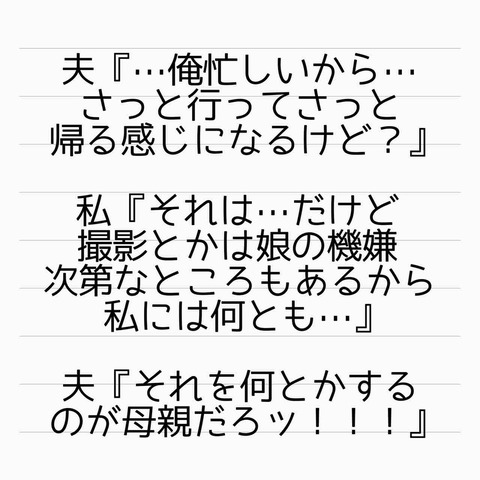 夫『…俺忙しいから…
さっと行ってさっと
帰る感じになるけど？』
私『それは…だけど
撮影とかは娘の機嫌
次第なところもあるから
私には何とも…』
夫『それを何とかする
のが母親だろッ！！！』